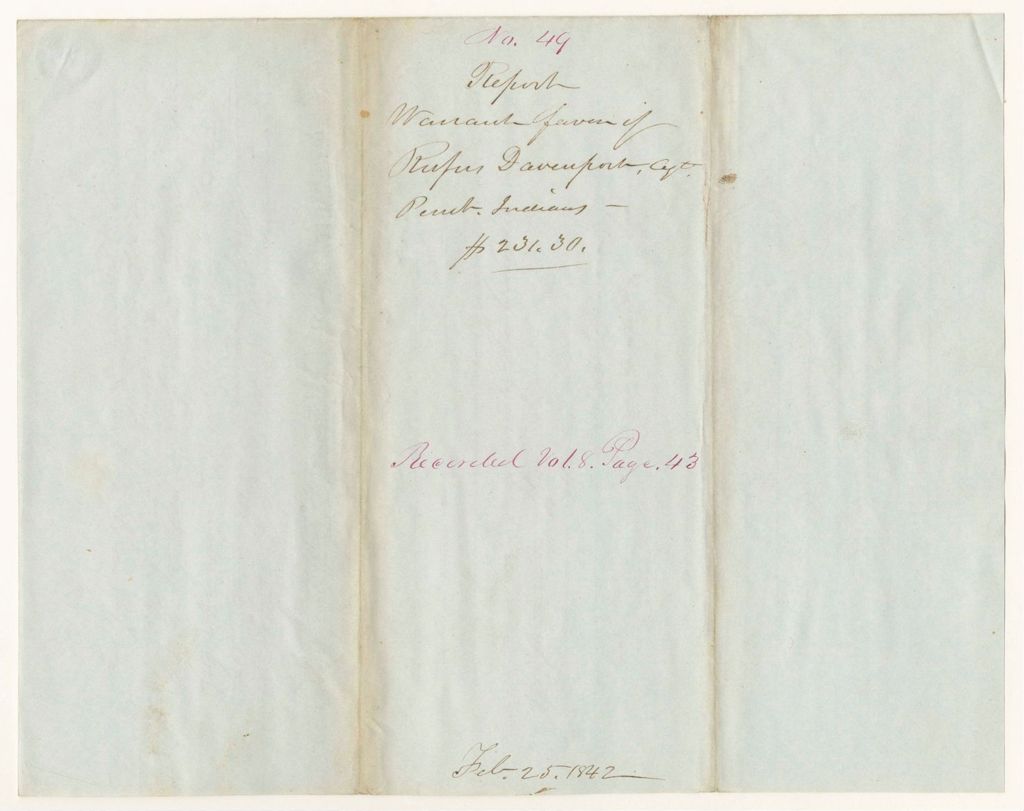 No. 49
Report
Warrant favor of
Rufus Davenport, Agt.
Penob. Indians —
$231.30.
Recorded Vol. 8. Page. 43
Feb. 25. 1842